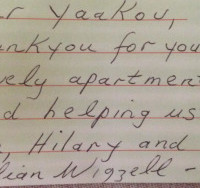 r Yaakov,
ankyou for you
vely apartment
d helping us
Hilary and
lian Wigzell -